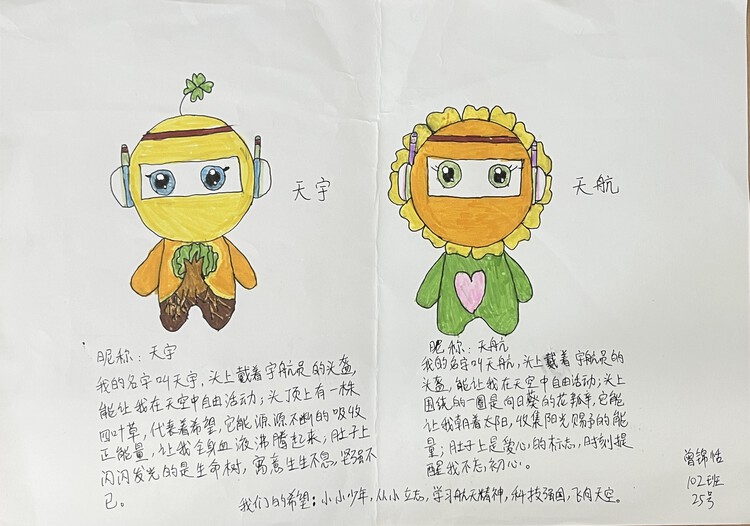 天宇
天航
昵称：天宇
我的名字叫天宇，头上戴着宇航员的头盔，
能让我在天空中自由活动；头顶上有一株
四叶草，代表着希望，它能源源不断的吸收
正能量，让我全身血液沸腾起来，肚子上
闪闪发光的是生命树，寓意生生不息，坚强不
已。
昵称：天航
我的名字叫天航，头上戴着宇航员的
头盔，能让我在天空中自由活动；头上
围绕的一圈是向日葵的花瓣，它能
让我朝着太阳，收集阳光赐予的能
量；肚子上是爱心的标志，时刻提
醒我不忘初心。
我们的希望：小小少年，从小立志，学习航天精神，科技强国，飞向天空。
曾锦恬
102班
25号